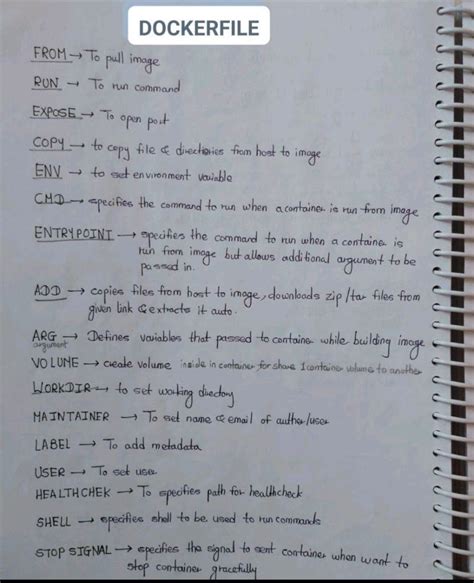 DOCKERFILE
FROM → To pull image
RUN → To run command
EXPOSE → To open port
COPY → to copy file & directories from host to image
ENV → to set environment variable
CMD → specifies the command to run when a container is run from image
ENTRYPOINT → specifies the command to run when a container is
run from image but allows additional argument to be
passed in.
ADD → copies files from host to image, downloads zip/tar files from
given link & extracts it auto.
ARG → Defines variables that passed to container while building image
argument
VOLUME → create volume inside in container for share 1 container volume to another
WORKDIR → to set working directory
MAINTAINER → To set name & email of author/user
LABEL → To add metadata
USER → To set user
HEALTHCHEK → To specifies path for healthcheck
SHELL → specifies shell to be used to run commands
STOP SIGNAL → specifies the signal to sent container when want to
stop container gracefully